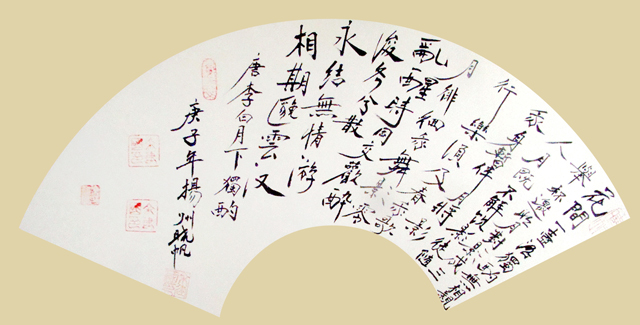 花間一壺酒獨酌無相親
舉杯邀明月對影成三
人月既不解飲影徒隨
我身暫伴月將影
行樂須及春我歌
月徘徊我舞影零
亂醒時同交歡醉
後各分散
永結無情游
相期邈雲漢
唐李白月下獨酌
庚子年揚州曉帆